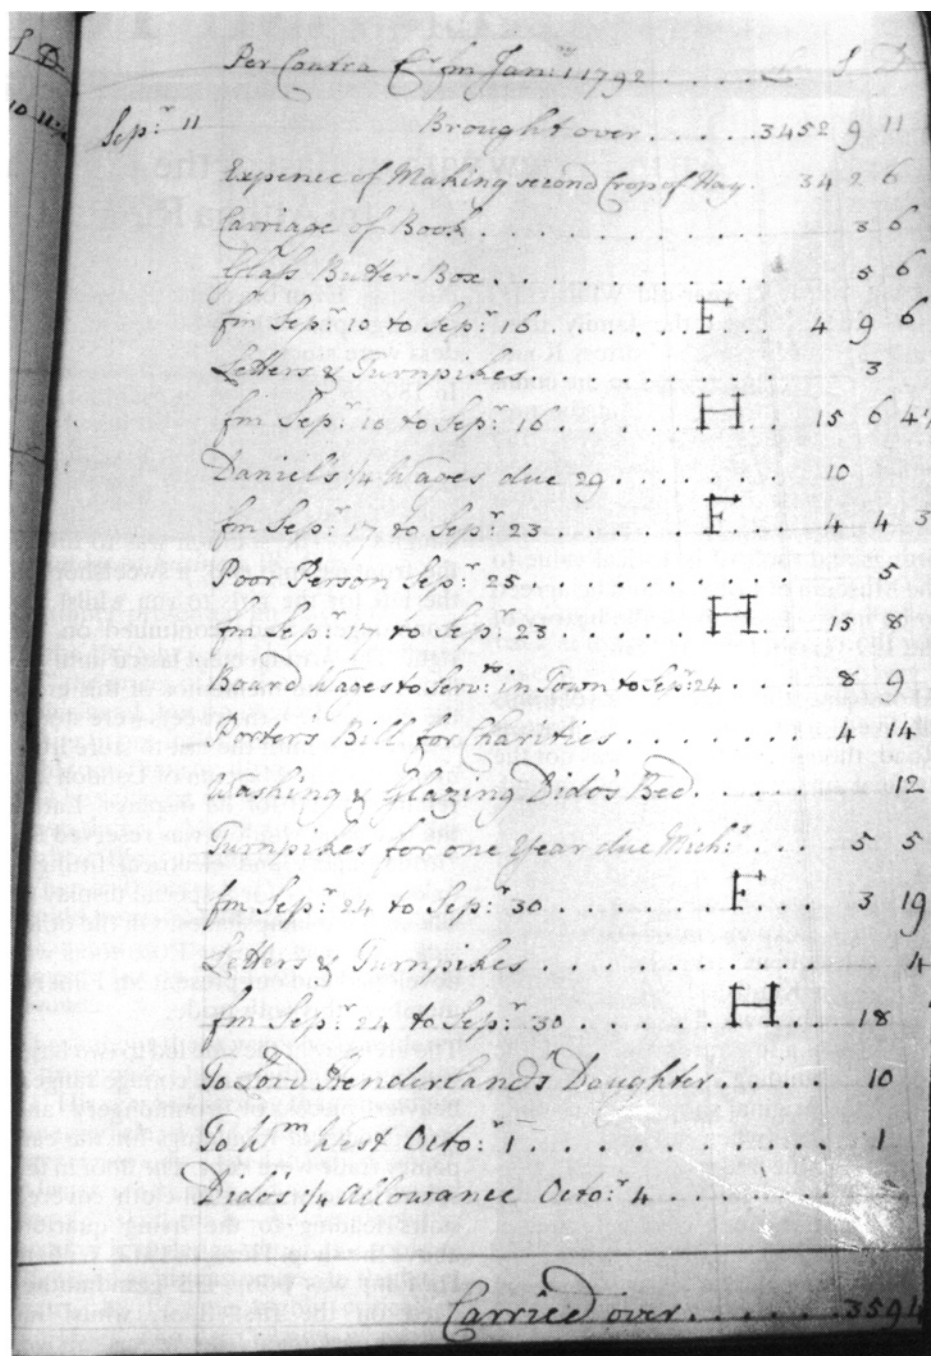 S D
Per Contra Cr fm Janry 1 1792 . . . . S D
10 11
Sepr: 11 Brought over . . . . . 3452 9 11
Expence of Making second Crop of Hay . 34 2 6
Carriage of Book . . . . . . . . . 3 6
Glass Butter-Box . . . . . . . . . 5 6
fm Sepr: 10 to Sepr: 16 . . . . . F . . . 4 9 6
Letters & Turnpikes . . . . . . . . . 3
fm Sepr: 10 to Sepr: 16 . . . . . H . . 15 6 4
Daniel's 1/4 Wages due 29 . . . . . . . 10
fm Sepr: 17 to Sepr: 23 . . . . . F . . . 4 4 3
Poor Person Sepr: 25 . . . . . . . . . . . 5
fm Sepr: 17 to Sepr: 23 . . . . . H . . 15 8
Board Wages to Servts: in Town to Sepr: 24 . . . 8 9
Porter's Bill for Charities . . . . . . . 4 14
Washing & Glazing Dido's Bed . . . . . . 12
Turnpikes for one Year due Michs: . . . 5 5
fm Sepr: 24 to Sepr: 30 . . . . . F . . . 3 19
Letters & Turnpikes . . . . . . . . . . 4
fm Sepr: 24 to Sepr: 30 . . . . H . . 18
To Lord Henderland's Daughter . . . . . 10
To Wm West Octor: 1 . . . . . . . . . . 1
Dido's 1/4 Allowance Octor: 4 . . . . . .
Carried over . . . . . . 3594